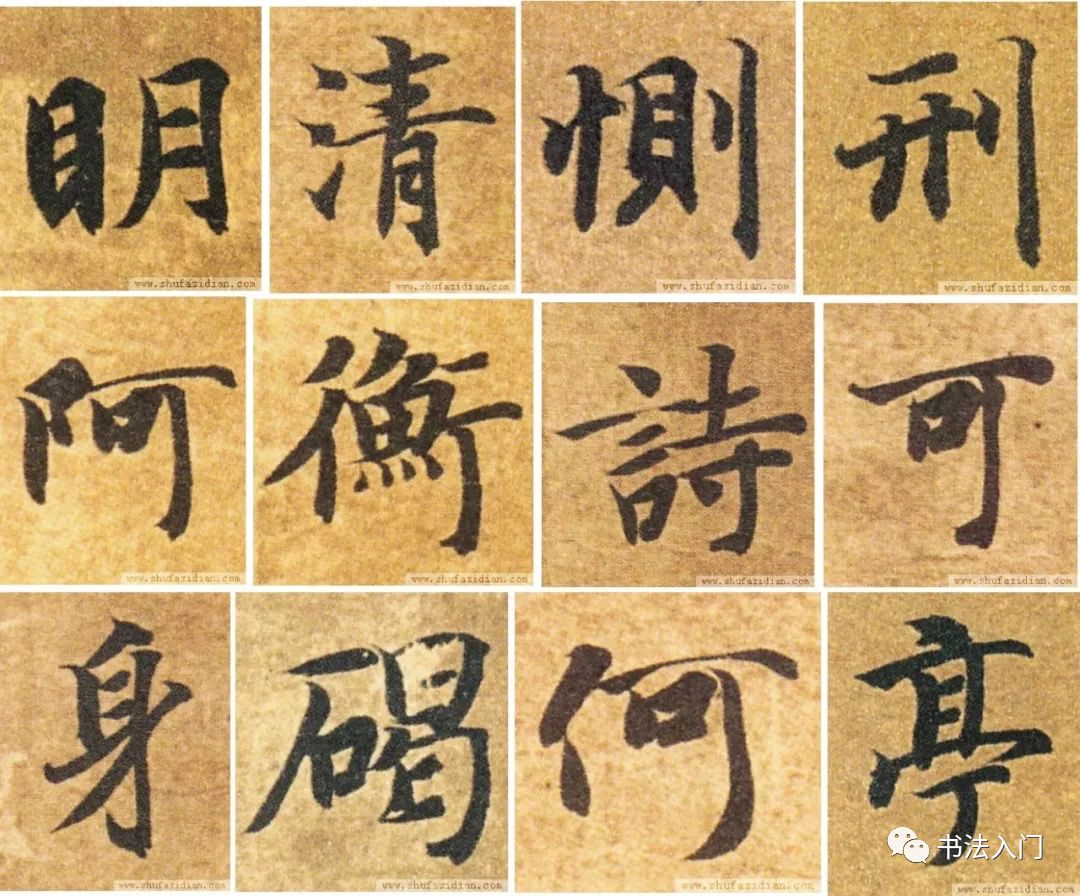 明清惻刑
www.shufazidian.com www.shufazidian.com www.shufazidian.com www.shufazidian.com
阿衡詩可
www.shufazidian.com www.shufazidian.com www.shufazidian.com www.shufazidian.com
身碣何亭
www.shufazidian.com www.shufazidian.com www.shufazidian.com www.shufazidian.com
书法入门